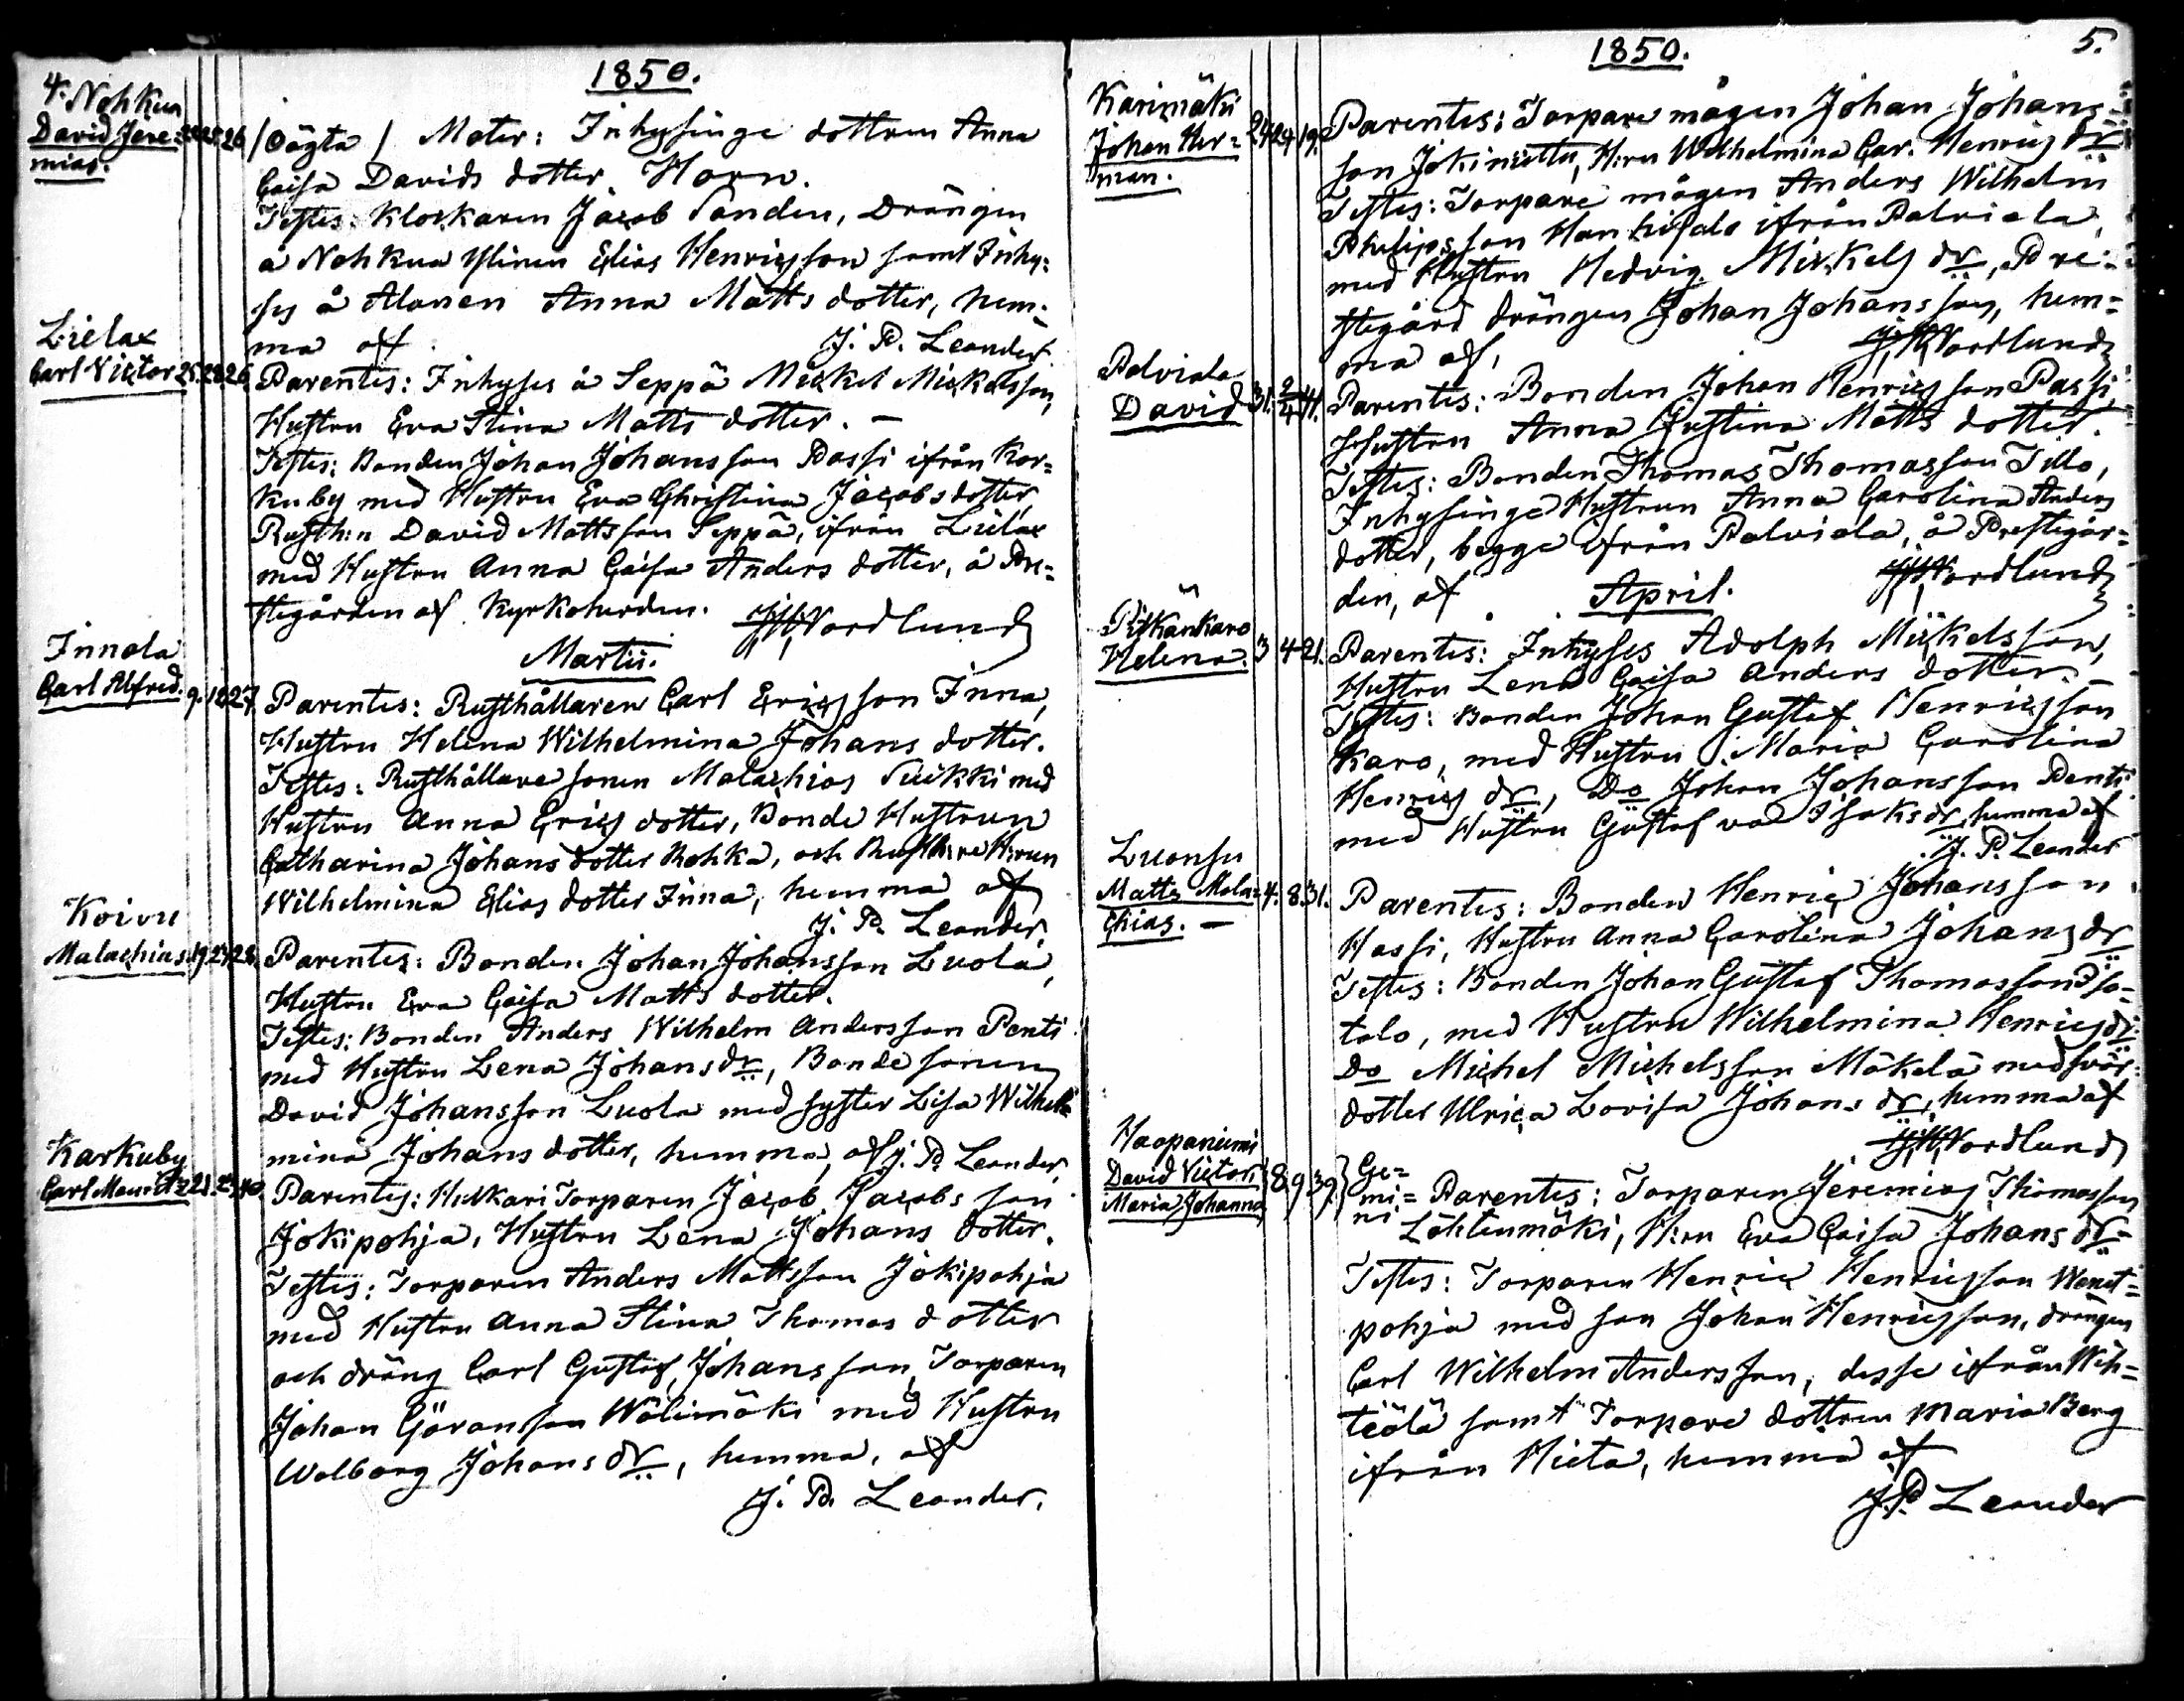 4.
1850.
Nohkua
David Jere=
mias.
25 26
/Oägta/ Mater: Inhysinge dottren Anna
Caisa Davids dotter Horn.
Testes: Klockaren Jacob Sanden, Drängen
å Nohkua Ylinen Elias Henricsson samt Inhy=
ses å Alanen Anna Matts dotter, hem=
ma af J. P. Leander
Lielax
Carl Victor 25. 28 26.
Parentes: Inhyses å Seppä Mickel Mickelsson,
Hustru Eva Stina Matts dotter. –
Testes: Bonden Johan Johansson Passi ifrån Kar=
kuby med Hustru Eva Christina Jacobsdotter,
Rusth:n David Mattsson Seppä, ifrån Lielax
med Hustru Anna Caisa Anders dotter, å Pre=
stegården af Kyrkoherden. Nordlund
Martii.
Innala
Carl Alfred. 9. 12 27.
Parentes: Rusthållaren Carl Ericsson Inna,
Hustru Helena Wilhelmina Johans dotter.
Testes: Rusthållare sonen Malachias Suikki med
Hustru Anna Erics dotter, Bonde Hustrun
Catharina Johans dotter Rohka, och Rusth:re H:run
Wilhelmina Elias dotter Inna, hemma af
J. P. Leander
Koivu
Malachias. 19. 24 28.
Parentes: Bonden Johan Johansson Luola,
Hustru Eva Caisa Matts dotter.
Testes: Bonden Anders Wilhelm Andersson Penti
med Hustru Lena Johans dr, Bonde sonen
David Johansson Luola med syster Lisa Wilhel=
mina Johans dotter, hemma, af J. P. Leander
Karkuby
Carl Mauritz 23. 29 40.
Parentes: Hukkari Torparen Jacob Jacobs son
Jokipohja, Hustru Lena Johans dotter.
Testes: Torparen Anders Mattsson Jokipohja
med Hustru Anna Stina Thomas dotter
och dräng Carl Gustaf Johansson, Torparen
Johan Göransson Wälimäki med Hustru
Walborg Johans dr, hemma, af
J. P. Leander.
1850.
5.
Karimäki
Johan Her=
man.
24 24 19.
Parentes: Torpare mågen Johan Johans=
son Jokiniettu, H:ru Wilhelmina Car. Henrics dr
Testes: Torpare mågen Anders Wilhelm
Philipsson Hankisalo ifrån Palviala,
med Hustru Hedvig Mickels dr, Pre=
stegård drängen Johan Johansson, hem=
ma af, Nordlund
Palviala
David 31. 2/4 11.
Parentes: Bonden Johan Henricsson Passi,
Hustru Anna Justina Matts dotter.
Testes: Bonden Thomas Thomasson Tillo,
Inhysinge Hustrun Anna Carolina Anders
dotter, begge ifrån Palviala, å Prestegår=
den, af Nordlund
April.
Pitkänkaro
Helena. 3 4 21.
Parentes: Inhyses Adolph Mickelsson,
Hustru Lena Caisa Anders dotter. –
Testes: Bonden Johan Gustaf Henricsson
Karo, med Hustru Maria Carolina
Henrics dr, Do Johan Johansson Penti
med Hustru Gustafva Isaks dr, hemma af
J. P. Leander
Luonsu
Matts Mala= 4. 8. 31.
chias. –
Parentes: Bonden Henric Johansson
Hassi, Hustru Anna Carolina Johans dr
Testes: Bonden Johan Gustaf Thomasson Iso=
talo, med Hustru Wilhelmina Henrics dr
Do Michel Michelsson Mäkelä med svär=
dotter Ulrica Lovisa Johans dr, hemma af
Nordlund
Haapaniemi
David Victor, 8 9 39.
Maria Johanna
Ge=
mi=
ni
Parentes: Torparen Jeremias Thomasson
Lähtenmäki, H:ru Eva Caisa Johans dr
Testes: Torparen Henric Henricsson Wanet=
pohja med son Johan Henricsson, drängen
Carl Wilhelm Andersson, desse ifrån Wih=
teölä samt Torpare dottren Maria Berg
ifrån Hieta, hemma af
J. P. Leander